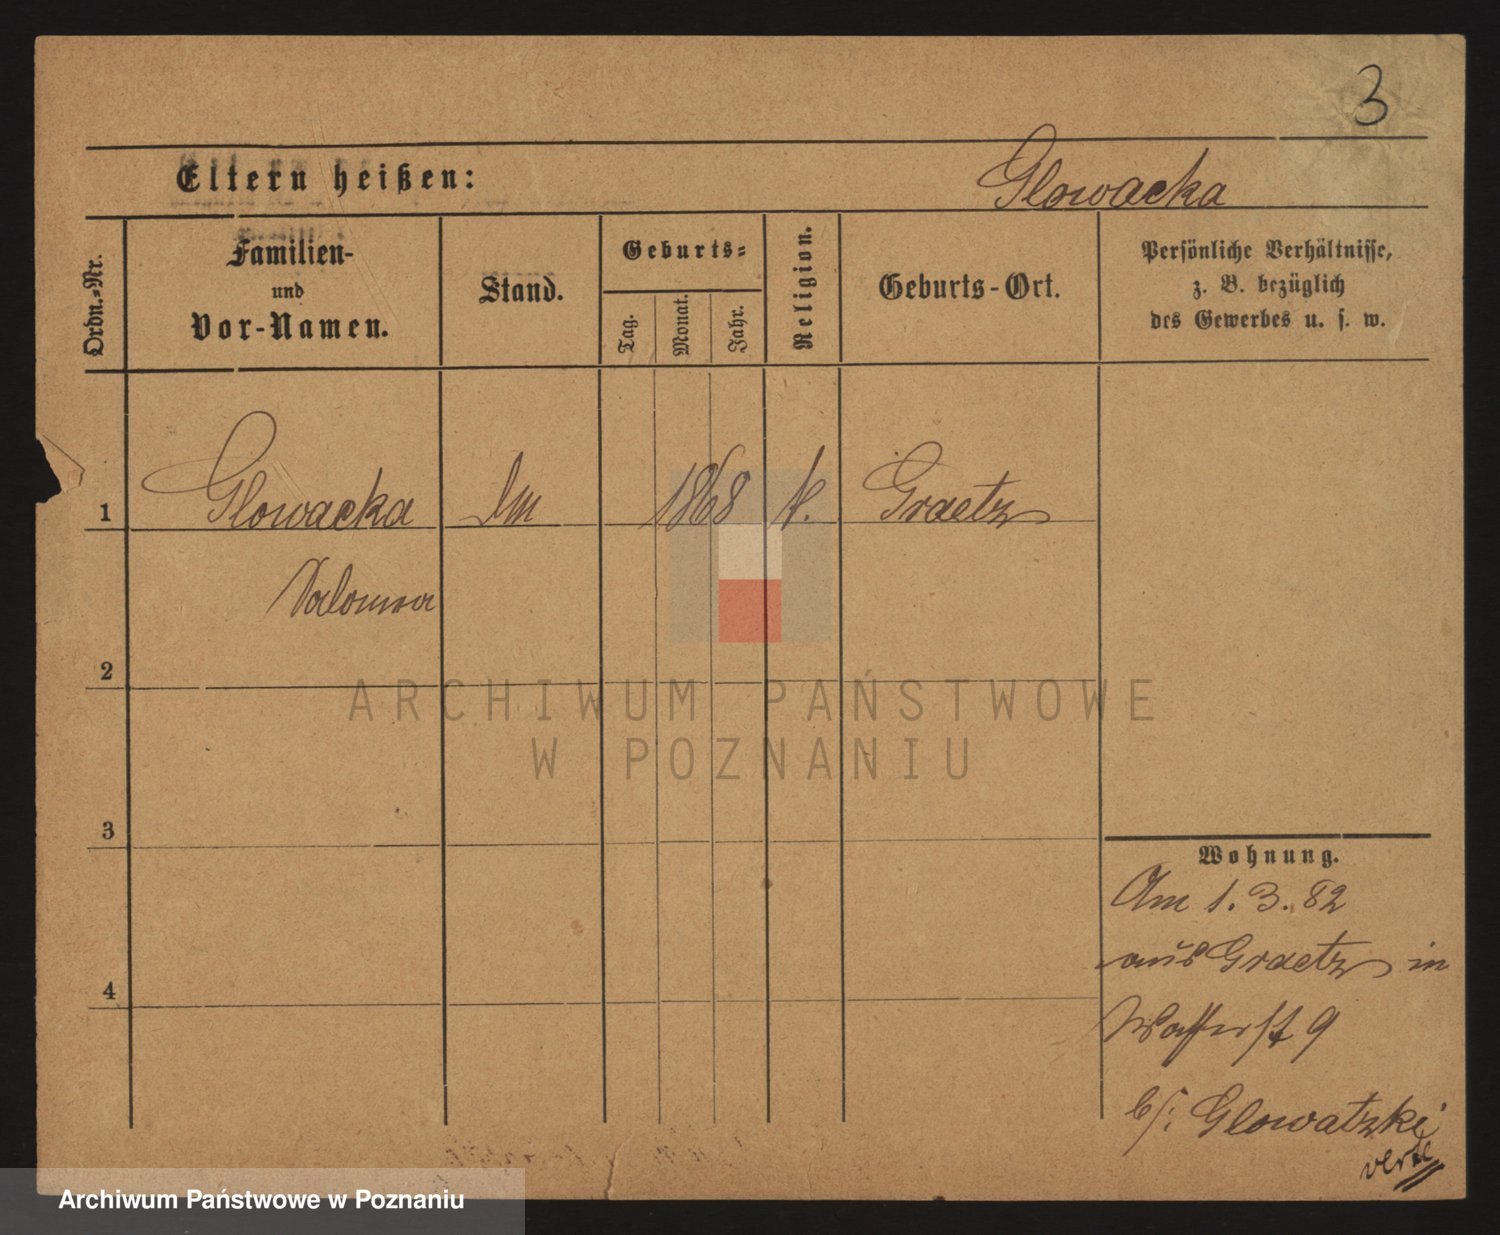 3
Eltern heißen:
Glowacka
Ordn.-Nr.
Familien-
und
Vor-Namen.
Stand.
Geburts-
Tag.
Monat.
Jahr.
Religion.
Geburts-Ort.
Persönliche Verhältnisse,
z. B. bezüglich
des Gewerbes u. s. w.
1
Glowacka
1868
k.
Graetz
2
3
4
Wohnung.
Am 1. 3. 82
aus Graetz in
Wasserst 9
b/: Glowatzki
verte
ARCHIWUM PAŃSTWOWE
W POZNANIU
Archiwum Państwowe w Poznaniu